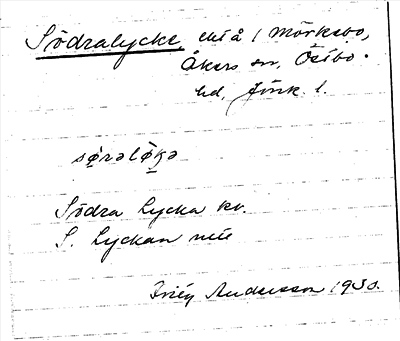 Södralycke, elä å / Mörkebo,
Åkers sn, Östbo
hd, Jönk. l.
sørəløkə
Södra Lycka kv.
S. Lyckan
Andersson 1930.